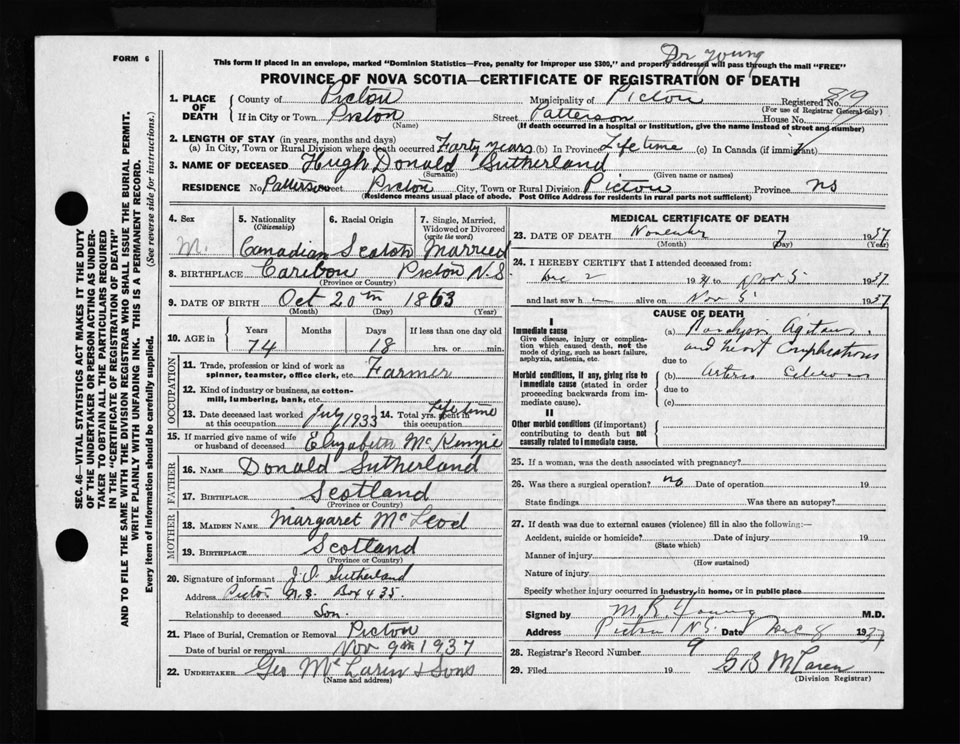 FORM 6
Dr Young
This form if placed in an envelope, marked "Dominion Statistics—Free, penalty for improper use $300," and properly addressed will pass through the mail "FREE"
PROVINCE OF NOVA SCOTIA—CERTIFICATE OF REGISTRATION OF DEATH
1. PLACE OF DEATH County of Pictou Municipality of Pictou Registered No. 819
(For use of Registrar General only)
If in City or Town Pictou Street Patterson House No.
(Name) (If death occurred in a hospital or institution, give the name instead of street and number)
2. LENGTH OF STAY (in years, months and days)
(a) In City, Town or Rural Division where death occurred Forty years (b) In Province Lifetime (c) In Canada (if immigrant)
3. NAME OF DECEASED Hugh Donald Sutherland
(Surname) (Given name or names)
RESIDENCE No. Patterson Street Pictou City, Town or Rural Division Pictou Province NS
(Residence means usual place of abode. Post Office Address for residents in rural parts not sufficient)
4. Sex 5. Nationality (Citizenship) 6. Racial Origin 7. Single, Married, Widowed or Divorced (write the word)
M. Canadian Scotch Married
8. BIRTHPLACE Caribou Pictou N.S
(Province or Country)
9. DATE OF BIRTH Oct 20th 1863
(Month) (Day) (Year)
10. AGE in Years Months Days If less than one day old
74 18 hrs. or min.
OCCUPATION
11. Trade, profession or kind of work as spinner, teamster, office clerk, etc. Farmer
12. Kind of industry or business, as cotton-mill, lumbering, bank, etc.
13. Date deceased last worked at this occupation July 1933 14. Total yrs. spent in this occupation Lifetime
15. If married give name of wife or husband of deceased Elizabeth McKenzie
FATHER
16. NAME Donald Sutherland
17. BIRTHPLACE Scotland
(Province or Country)
MOTHER
18. MAIDEN NAME Margaret McLeod
19. BIRTHPLACE Scotland
(Province or Country)
20. Signature of informant J.D. Sutherland
Address Pictou N.S. Box 435.
Relationship to deceased Son.
21. Place of Burial, Cremation or Removal Pictou
Date of burial or removal Nov 9th 1937
22. UNDERTAKER Geo McLaren & Sons
(Name and address)
MEDICAL CERTIFICATE OF DEATH
23. DATE OF DEATH November 7 1937
(Month) (Day) (Year)
24. I HEREBY CERTIFY that I attended deceased from:
Dec 2 19 to Nov 5 1937
and last saw h alive on Nov 5 1937
CAUSE OF DEATH
I
Immediate cause
Give disease, injury or complication which caused death, not the mode of dying, such as heart failure, asphyxia, asthenia, etc.
(a) Paralysis Agitans
and heart Complications
due to
Morbid conditions, if any, giving rise to immediate cause (stated in order proceeding backwards from immediate cause).
(b) Arterio Sclerosis
due to
(c)
II
Other morbid conditions (if important) contributing to death but not causally related to immediate cause.
25. If a woman, was the death associated with pregnancy?
26. Was there a surgical operation? no Date of operation 19
State findings Was there an autopsy?
27. If death was due to external causes (violence) fill in also the following:—
Accident, suicide or homicide? Date of injury 19
(State which)
Manner of injury
(How sustained)
Nature of injury
Specify whether injury occurred in Industry, in home, or in public place
Signed by M.R. Young M.D.
Address Pictou N.S. Date 8 1937
28. Registrar's Record Number 9
29. Filed 19 G B McLaren
(Division Registrar)
SEC. 46—VITAL STATISTICS ACT MAKES IT THE DUTY
OF THE UNDERTAKER OR PERSON ACTING AS UNDER-
TAKER TO OBTAIN ALL THE PARTICULARS REQUIRED
IN THE "CERTIFICATE OF REGISTRATION OF DEATH"
AND TO FILE THE SAME WITH THE DIVISION REGISTRAR WHO SHALL ISSUE THE BURIAL PERMIT.
WRITE PLAINLY WITH UNFADING INK. THIS IS A PERMANENT RECORD.
Every item of information should be carefully supplied. (See reverse side for instructions.)